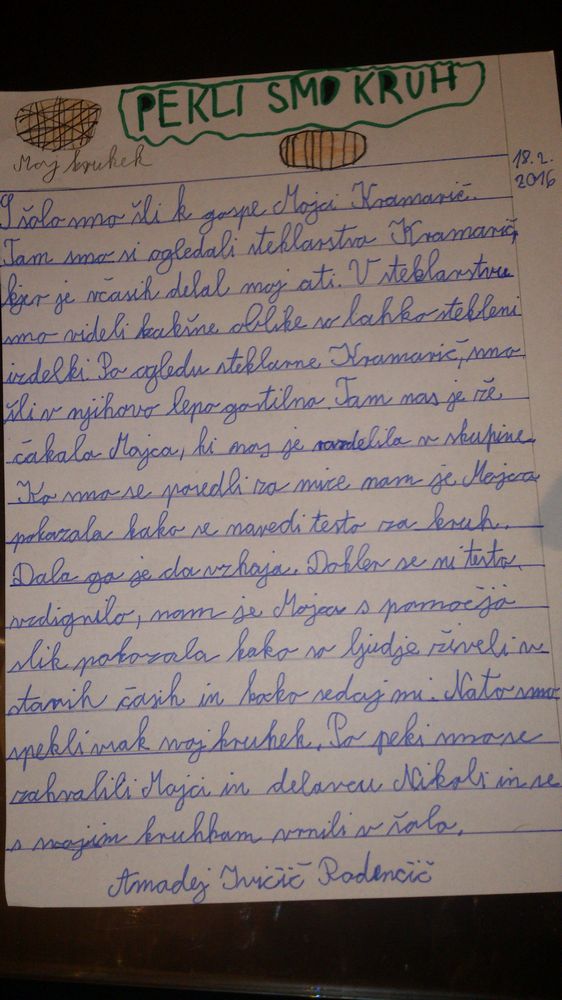 PEKLI SMO KRUH
Moj kruhek
18.2.
2016
S šolo smo šli k gospe Mojci Kramarič.
Tam smo si ogledali steklarstvo Kramarič,
kjer je včasih delal moj ati. V steklarstvu
smo videli kakšne oblike so lahko stekleni
izdelki. Po ogledu steklarne Kramarič, smo
šli v njihovo lepo gostilno. Tam nas je že
čakala Mojca, ki nas je razdelila v skupine.
Ko smo se posedli za mize nam je Mojca
pokazala kako se naredi testo za kruh.
Dala ga je da vzhaja. Dokler se ni testo
vzdignilo, nam je Mojca s pomočjo
slik pokazala kako so ljudje živeli v
starih časih in kako sedaj mi. Nato smo
spekli vsak svoj kruhek. Po peki smo se
zahvalili Mojci in delavcu Nikoli in se
s svojim kruhkam vrnili v šolo.
Amadej Ivičič Radenčič